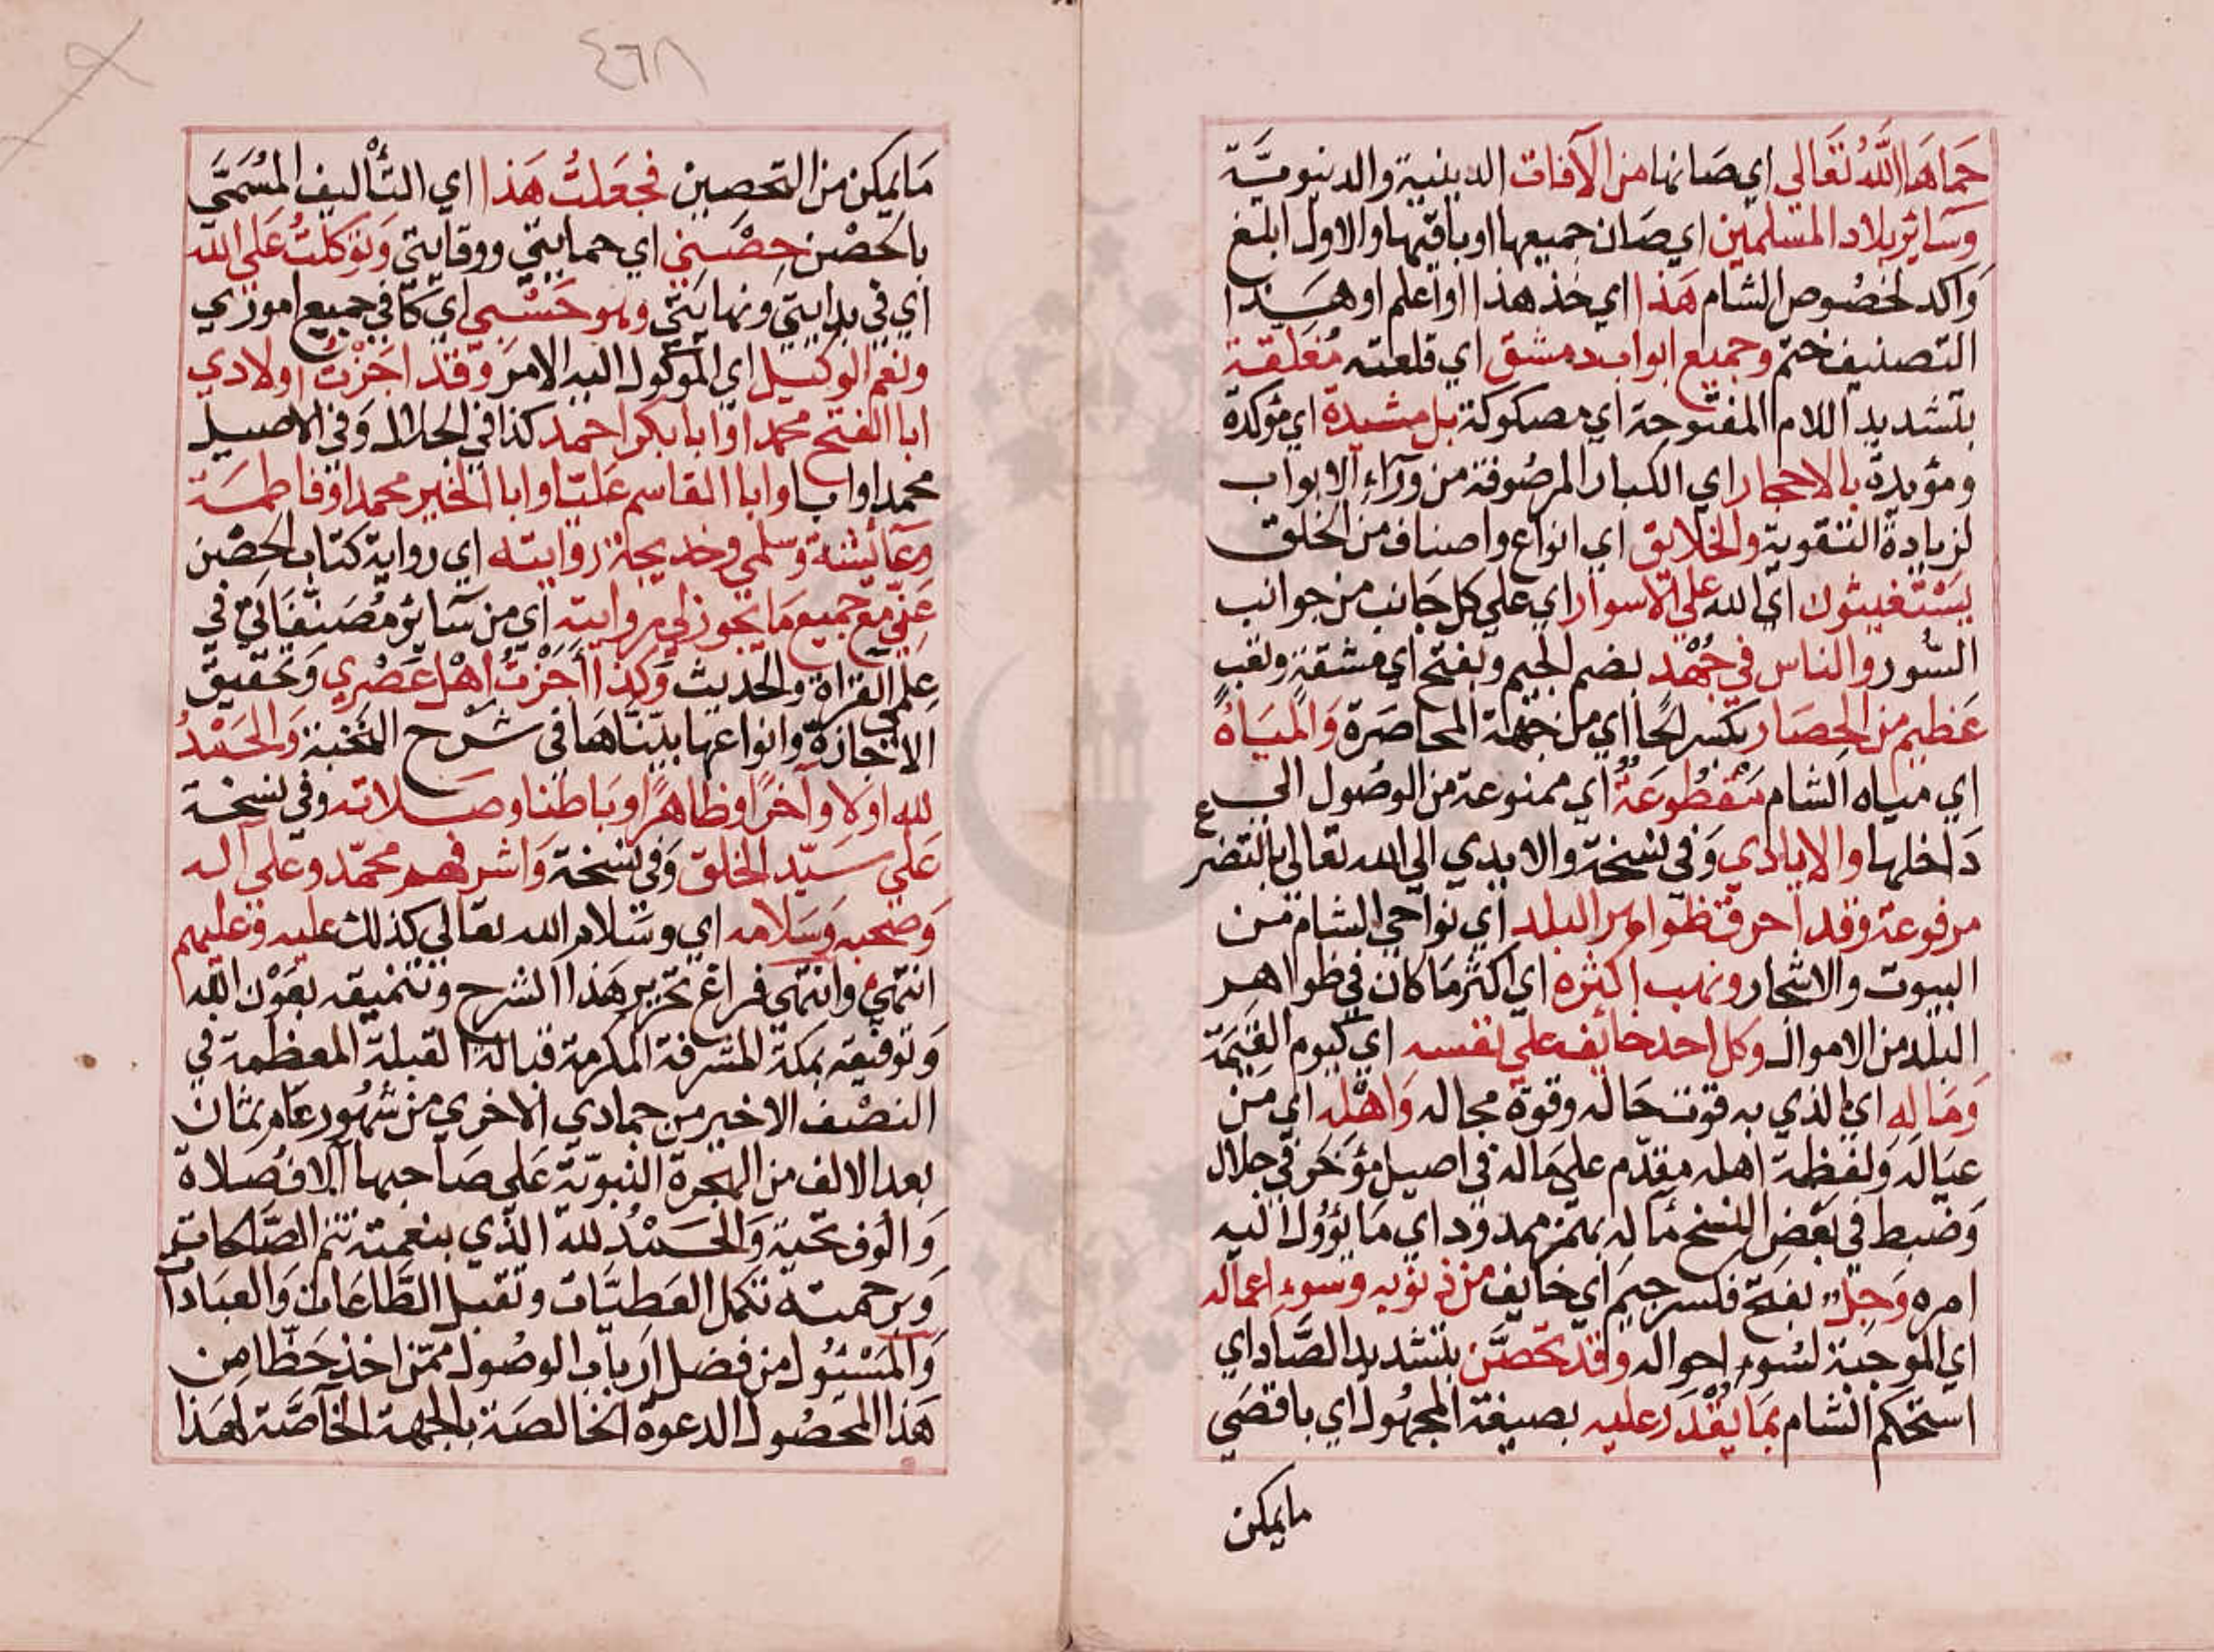 حَمَاهَا اللَّهُ تَعَالي اي صَانها من الآفات الدينية والدنيويَّة
وسَائر بلاد المسْلمين اي صَان جميعها او باقيها والاول ابلغ
وَاكد لخصُوص الشام هَذا اي خذ هذا او اعلم او هَذا
التصنيف ختم وجميع ابواب دمشق اي قلعته مُغَلقة
بتشديد اللام المفتوحة اي مصكوكة بل مشيدة اي مؤكدة
ومؤيدة بالاحجار اي الكبار المرصُوفة من ورَآءِ الابواب
لزيادة التقوية والخلائق اي انواع واصناف من الخلق
يسْتغيثون اي الله على الاسوار اي علي كل جَانب من جوانب
السُّور والناس في جُهْد بضم الجيم وبفتح اي مشقة وتعب
عَظيم من الحِصَار بكسر لحا اي من جهة المحاصَرة وَالميَاهُ
اي مياه الشام مَقْطُوعَةٌ اي ممنوعة من الوصُول الي
دَاخلها والايادي وَفي نسخة والايدي الي الله تعالى بالتضرع
مرفوعة وقد احرق ظواهر البلد اي نواحي الشام من
البيوت والاشجار ونهب اكثره اي اكثر مَا كان في ظواهر
البلد من الاموال وكل احد خائف علي نفسه اي كيوم القيمَة
وَمَاله اي الذي به قوت حَاله وقوة مجاله وَاهْله اي من
عيَاله وَلفظة اهله مقدّم علي مَاله في اصيل مؤخر في جلال
وَضبط في بَعْض النسخ مآله بهمز ممدود اي مَا يؤول اليه
امره وَجِلٌ بفتح فكسر جيم اي خايف من ذنوبه وسوءِ اعماله
اي الموجبة لسُوء احواله وقد تحصَّن بتشديد الصَّاد اي
استحكم الشام بمَا يُقْدَر عليه بصيغة المجهُول اي باقصَي
مايمكن
٤٦٨
مَا يمكن من التحصين فجعَلتُ هَذا اي التأليف المُسَمَّى
بالحصْن حِصْني اي حمايتي ووقايتي وَتوكلتُ عَلي الله
اي في بدايتي وَنهايتي وهو حَسْبي اي كافي جميع اموري
ونعم الوكيل اي الموكول اليه الامر وَقد اجَزتُ اولادي
ابا الفتح محمدا وابا بكر احمد كذا في الجلال وَفي الاصيل
محمدا وابا وابا القاسم عَليّا وابا الخير محمدا وفاطمَة
وعَائشة وسلمي وخديجة روايته اي رواية كتاب الحِصْن
عَنّي مع جميع مَا يجوز لي روايته اي من سَائر مُصَنّفَاتي في
علمي القراة والحديث وَكذا أجَزْتُ اهْل عَصْري وَتحقيق
الاجازة وانواعها بينّاهَا في شرْح النخبة وَالحَمْدُ
لله اولا وآخرًا وظاهرًا وبَاطنا وصَلاته وفي نسخة
عَلي سَيّد الخلق وَفي نسخة وَاشرفهم محمّد وعلي آله
وَصحبه وَسَلامه اي وسَلام الله تعالي كذلك عليه وَعليهم
انتهي وانتهَي فراغ تحرير هَذا الشرح وتنميقه بعَوْن الله
وَتوفيقه بمكة المشرفة المكرمة قبالة القبلة المعظمة في
النصْف الاخير من جمادي الاخري من شهُور عَام ثمَان
بعد الالف من الهجرة النبويّة عَلي صَاحبها آلاف صَلاة
وَالوف تحية وَالحَمْدُ لله الذي بنعمته تتم الصَّالحات
وَبرحمته تكمل العَطيَّات وتقبل الطَّاعَات وَالعبَادات
وَالمَسْئول من فضل ارباب الوصُول ممّن اخذ حَظّا من
هَذا المحصُول الدعوة الخالصَة بالجهة الخَآصَّة لهَذا